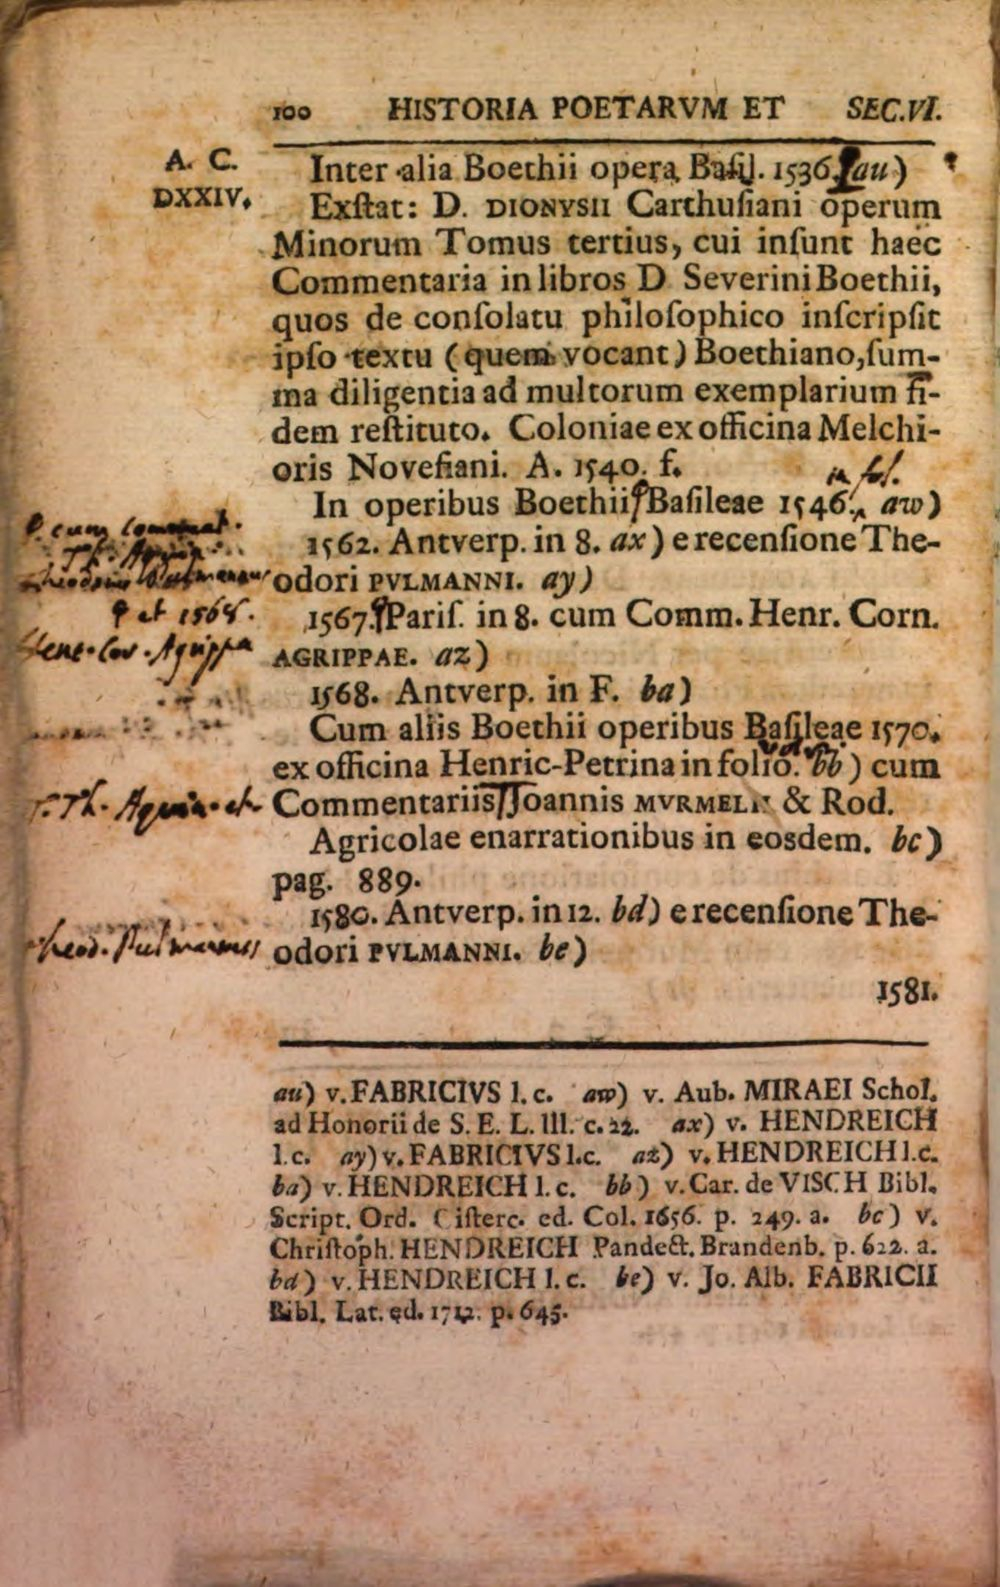 100 HISTORIA POETARVM ET SEC.VI.
A. C.
DXXIV.
Inter alia Boethii opera Baſil. 1536. au)
Exſtat: D. DIONYSII Carthuſiani operum
Minorum Tomus tertius, cui inſunt haec
Commentaria in libros D Severini Boethii,
quos de conſolatu philoſophico inſcripſit
ipſo textu (quem vocant) Boethiano, ſum-
ma diligentia ad multorum exemplarium fi-
dem reſtituto. Coloniae ex officina Melchi-
oris Noveſiani. A. 1540. f.
in fol.
In operibus Boethii Baſileae 1546. aw)
cum Comment.
Th. Aquin.
1562. Antverp. in 8. ax) e recenſione The-
Theodorus Pulmannus
odori PVLMANNI. ay)
et 1565.
1567. Pariſ. in 8. cum Comm. Henr. Corn.
Henr. Cor. Agrippa
AGRIPPAE. az)
1568. Antverp. in F. ba)
Cum aliis Boethii operibus Baſileae 1570.
ex officina Henric-Petrina in folio. bb) cum
Th. Aquin. et
Commentariis Joannis MVRMELII & Rod.
Agricolae enarrationibus in eosdem. bc)
pag. 889.
1580. Antverp. in 12. bd) e recenſione The-
Theod. Pulmannus
odori PVLMANNI. be)
1581.
au) v. FABRICIVS l. c. aw) v. Aub. MIRAEI Schol.
ad Honorii de S. E. L. III. c. 22. ax) v. HENDREICH
l. c. ay) v. FABRICIVS l.c. az) v. HENDREICH l.c.
ba) v. HENDREICH l. c. bb) v. Car. de VISCH Bibl.
Script. Ord. Ciſterc. ed. Col. 1656. p. 249. a. bc) v.
Chriſtoph. HENDREICH Pandect. Brandenb. p. 622. a.
bd) v. HENDREICH l. c. be) v. Jo. Alb. FABRICII
Bibl. Lat. ed. 1712. p. 645.